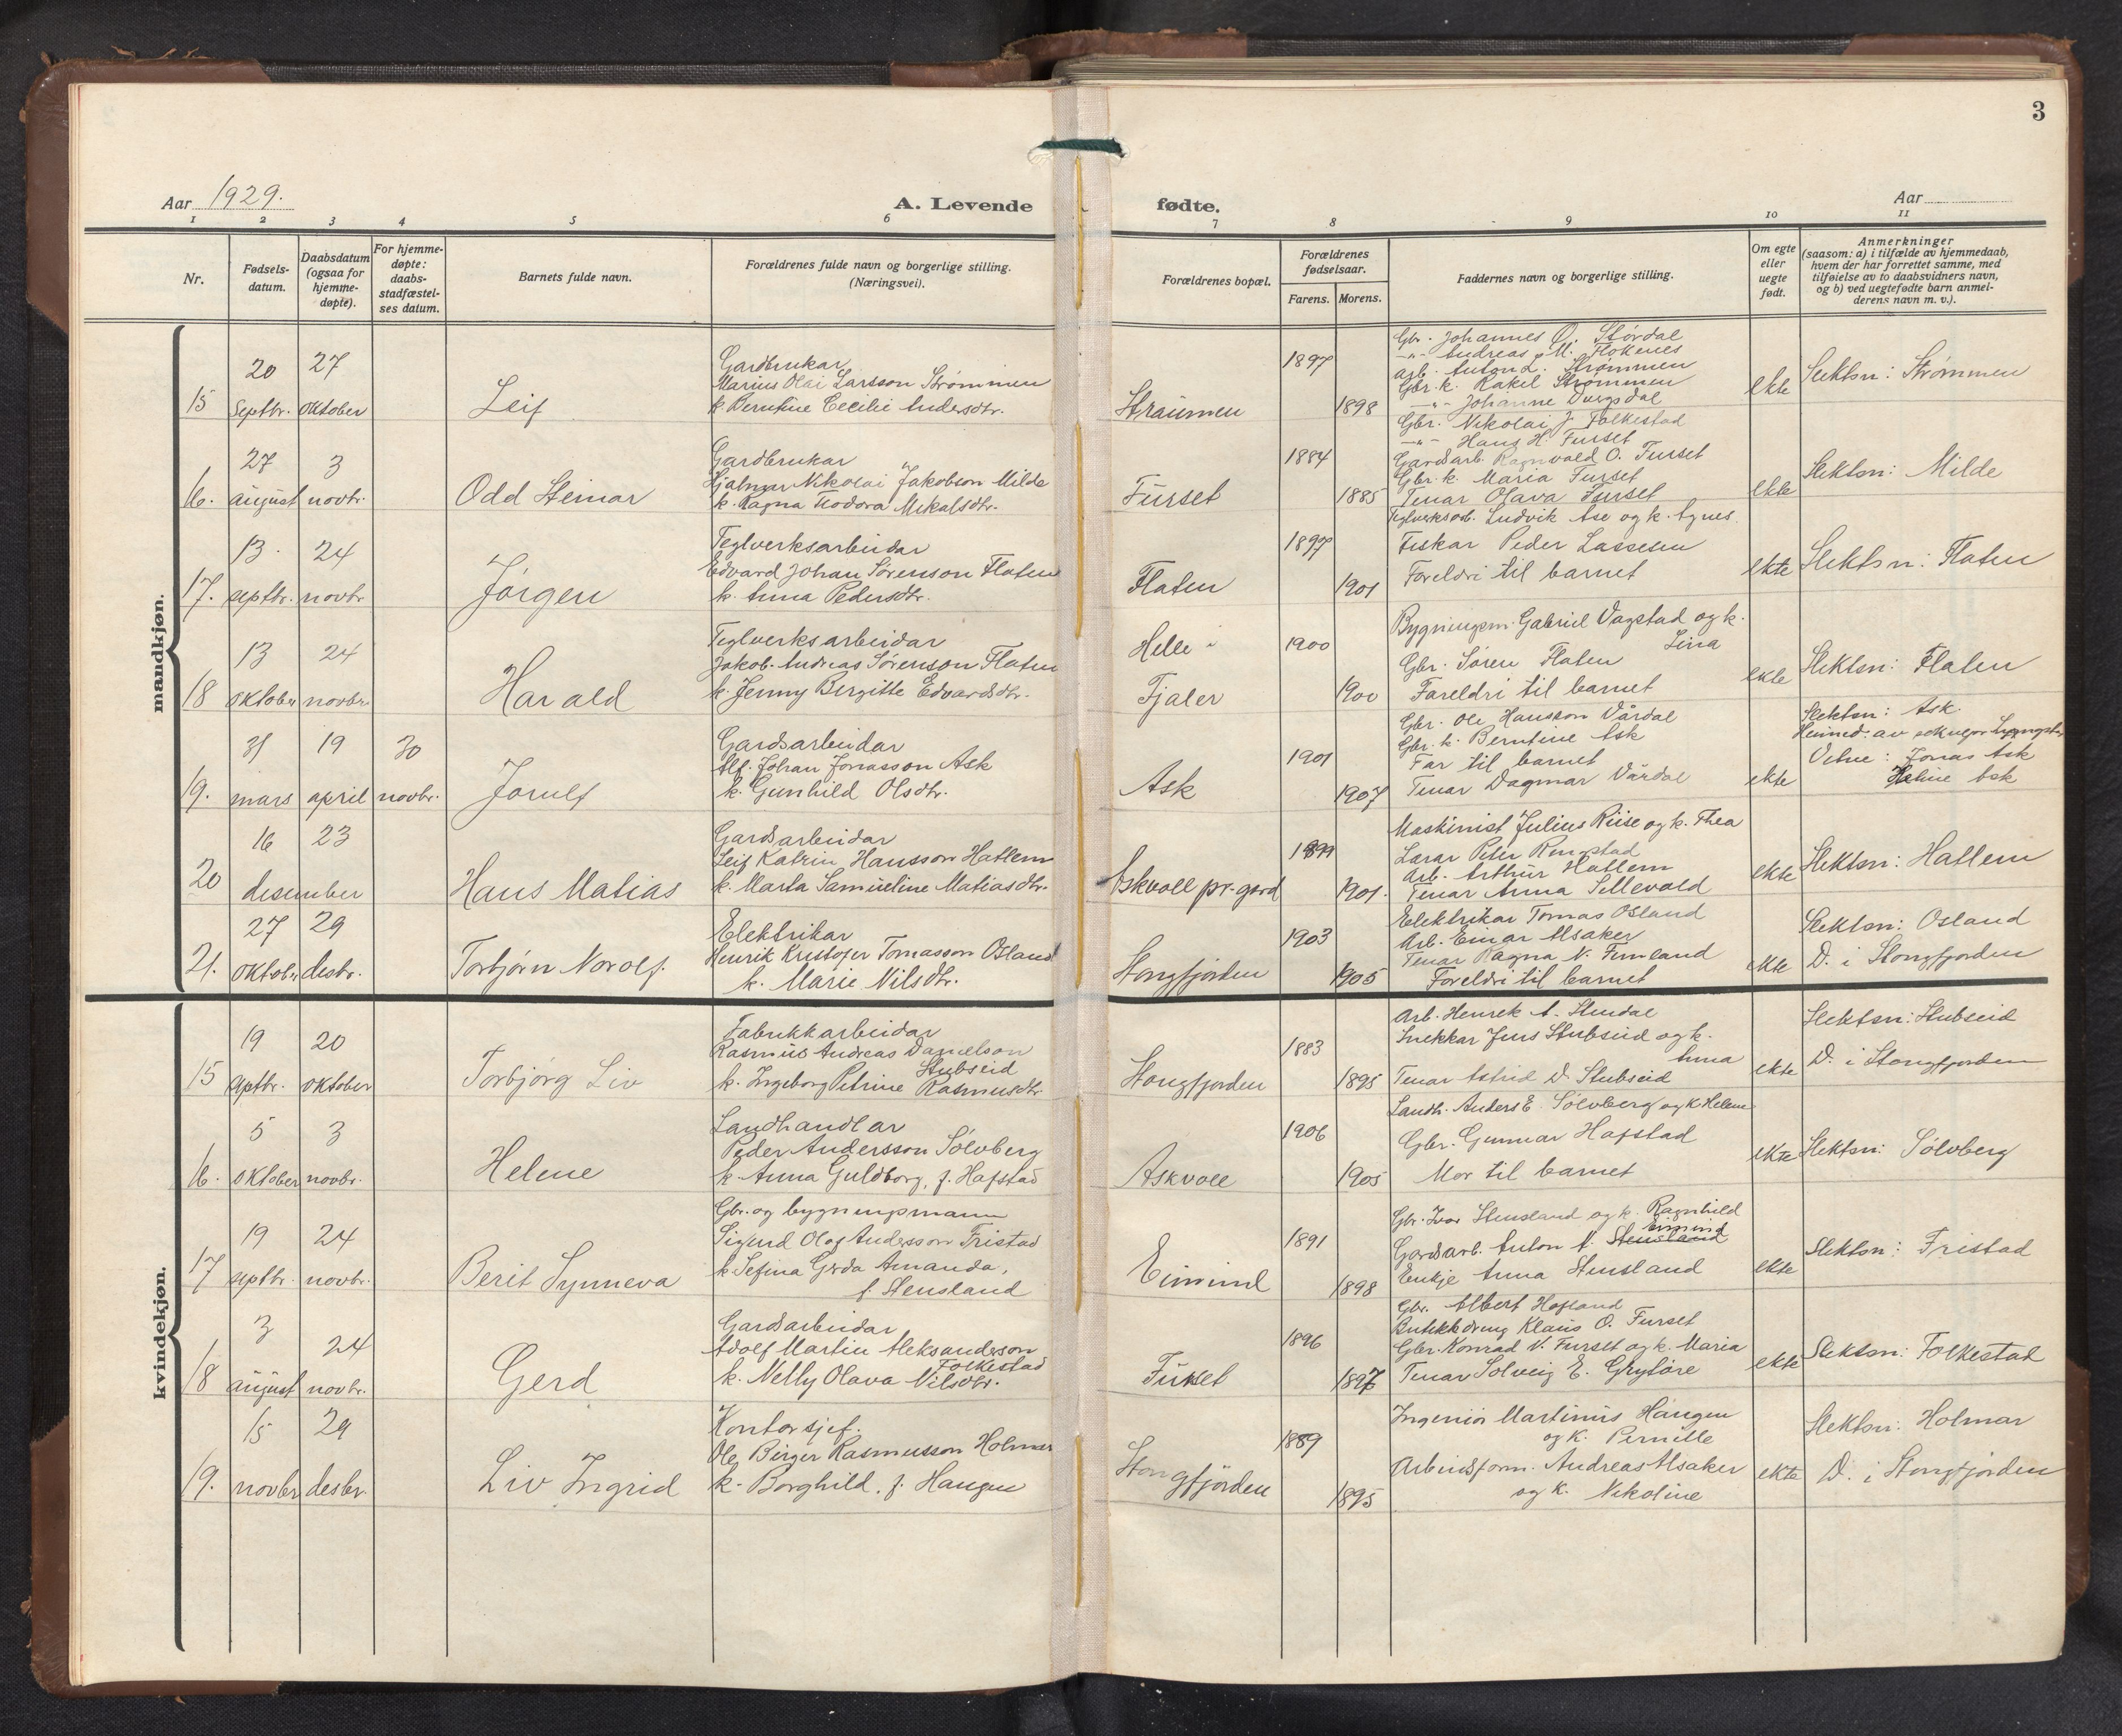 3
Aar 1929.
A. Levende
fødte.
Aar
1 2 3 4 5 6 7 8 9 10 11
Nr.
Fødsels-
datum.
Daabsdatum
(ogsaa for
hjemme-
døpte).
For hjemme-
døpte:
daabs-
stadfæstel-
ses datum.
Barnets fulde navn.
Forældrenes fulde navn og borgerlige stilling.
(Næringsvei).
Forældrenes bopæl.
Forældrenes
fødselsaar.
Farens. Morens.
Faddernes navn og borgerlige stilling.
Om egte
eller
uegte
født.
Anmerkninger
(saasom: a) i tilfælde av hjemmedaab,
hvem der har forrettet samme, med
tilføielse av to daabsvidners navn,
og b) ved uegtefødte barn anmel-
derens navn m. v.).
mandkjøn.
15
20
Septbr.
27
oktober
Leif
Gardbrukar
Marius Olai Larsson Strømmen
k. Berntine Cecilie Andersdtr.
Straumen
1897
1898
Gbr. Johannes O. Størdal
-"- Andreas M. Flokenes
Arb. Anton L. Strømmen
Gbr. k. Rakel Strømmen
-"- Johanne Dvergsdal
ekte
Slektsn: Strømmen
16.
27
august
3
novbr.
Odd Steinar
Gardbrukar
Hjalmar Nikolai Jakobson Milde
k. Ragna Teodora Mikalsdtr.
Furset
1884
1885
Gbr. Nikolai J. Folkestad
-"- Hans H. Furset
Gardsarb. Ragnvald O. Furset
Gbr. k. Maria Furset
Tenar Olava Furset
ekte
Slektsn: Milde
17.
13.
septbr.
24
novbr
Jørgen
Teglverksarbeidar
Edvard Johan Sørenson Flaten
k. Anna Pedersdtr.
Flaten
1897
1901
Teglverksarb. Ludvik Ase og k. Agnes.
Fiskar Peder Lassesen
Foreldri til barnet
ekte
Slektsn: Flaten
18
13
oktober
24
novbr.
Harald
Teglverksarbeidar
Jakob Andreas Sørenson Flaten
k. Jenny Bergitte Edvardsdtr.
Helle i
Fjaler
1900
1900
Bygningsm. Gabriel Vagstad og k.
Lina
Gbr. Søren Flaten
Foreldri til barnet
ekte
Slektsn: Flaten
19.
31
mars
19
april
30
novbr.
Jorulf
Gardsarbeidar
Alf Johan Jonasson Ask
k. Gunhild Olsdtr.
Ask
1901
1907
Gbr. Ole Hansson Vårdal
Gbr. k. Berntine Ask
Far til barnet
Tenar Dagmar Vårdal
ekte
Slektsn: Ask.
Heimed. av sokneprest
Vitne: Jonas Ask
Heline Ask
20
16 23
desember
Hans Matias
Gardsarbeidar
Leif Katrin Hansson Hatlem
k. Marta Samueline Matiasdtr.
Askvoll pr.gard
1899
1901.
Maskinist Julius Riise og k. Thea
Lærar Peter Ringstad
Arb. Arthur Hatlem
Tenar Anna Sellevold
ekte
Slektsn: Hatlem
21.
27
oktobr.
29
desbr.
Torbjørn Norolf.
Elektrikar
Henrik Kristofer Tomasson Osland
k. Marie Nilsdtr.
Stongfjorden
1903
1905
Elektrikar Tomas Osland
Arb. Einar Alsaker
Tenar Ragna N. Fimland
Foreldri til barnet
ekte
Slektsn: Osland
D. i Stongfjorden
kvindekjøn.
15
19
septbr.
20
oktober
Torbjørg Liv
Fabrikkarbeidar
Rasmus Andreas Danielson
Stubseid
k. Ingeborg Petrine Rasmusdtr.
Stongfjorden
1883
1895
Arb. Henrik A. Stendal
Snekkar Jens Stubseid og k.
Anna
Tenar Astrid D. Stubseid
ekte
Slektsn: Stubseid
D. i Stongfjorden
16.
5
oktober
3
novbr.
Helene
Landhandlar
Peder Andersson Sølvberg
k. Anna Guldborg, f. Hafstad
Askvoll
1906
1905
Landh. Anders E. Sølvberg og k Helene
Gbr. Gunnar Hafstad
Mor til barnet
ekte
Slektsn: Sølvberg
17
19
septbr.
24
novbr.
Berit Synneva
Gbr. og bygningsmann
Sigurd Olaf Andersson Fristad
k. Sefina Gerda Amanda,
f. Stensland
Eimind
1891
1898
Gbr. Ivar Stensland og k. Ragnhild
Eimind
Gardsarb. Anton A. Stensland
Enkje Anna Stensland
ekte
Slektsn: Fristad
18
3
august
24
novbr.
Gerd
Gardsarbeidar
Adolf Martin Aleksanderson
Folkestad
k. Nelly Olava Nilsdtr.
Furset
1896
1897
Gbr. Albert Hofland
Butikkdreng Klaus O. Furset
Gbr. Konrad N. Furset og k. Maria
Tenar Solveig E. Grytøre
ekte
Slektsn: Folkestad
19.
15
novbr
29
desbr.
Liv Ingrid
Kontorsjef.
Ole Birger Rasmusson Holmar
k. Borghild, f. Haugen
Stongfjorden
1889
1895
Ingeniør Martinus Haugen
og k. Pernille
Arbeidsform. Andreas Alsaker
og k. Nikoline
ekte
Slektsn: Holmar
D. i Stongfjorden